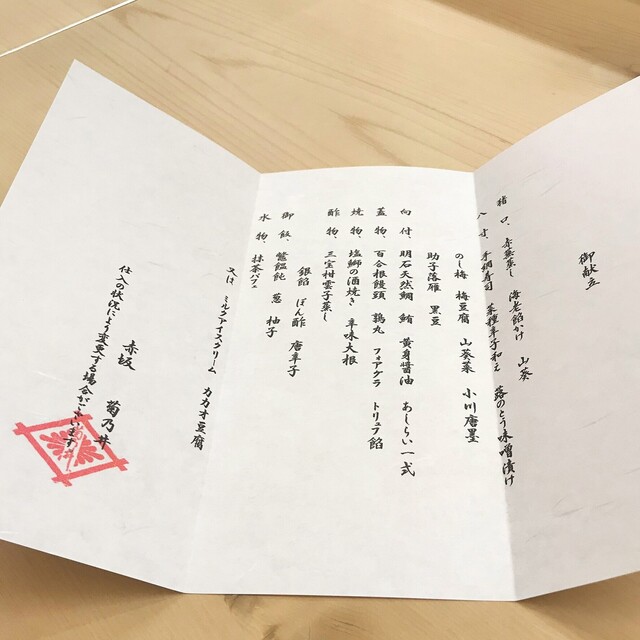 御献立
猪口、赤蕪蒸し 海老餡かけ 山葵
八寸、手綱寿司 菜種辛子和え 蕗のとう味噌漬け
のし梅 梅豆腐 山葵菜 小川唐墨
助子落雁 黒豆
向付、明石天然鯛 鮪 黄身醤油 あしらい一式
蓋物、百合根饅頭 鶉丸 フォアグラ トリュフ餡
焼物、塩鰤の酒焼き 辛味大根
酢物、三宝柑雲子蒸し
銀餡 ぽん酢 唐辛子
御飯、鷩饂飩 葱 柚子
水物、抹茶パフェ
又は ミルクアイスクリーム カカオ豆腐
赤坂 菊乃井
仕入の状況により変更する場合がございます